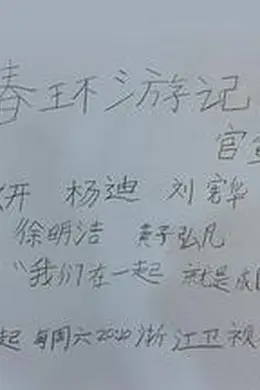 春环游记
官
开 杨迪 刘宪华
徐明浩 黄子弘凡
"我们在一起 就是成
起 每周六2020浙江卫视